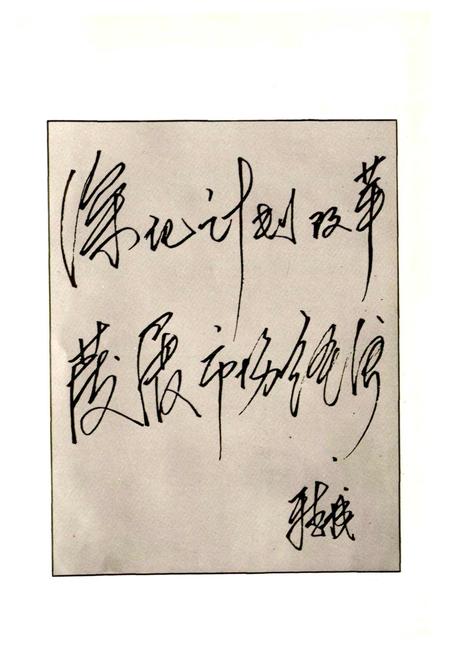 深化计划改革
发展市场经济